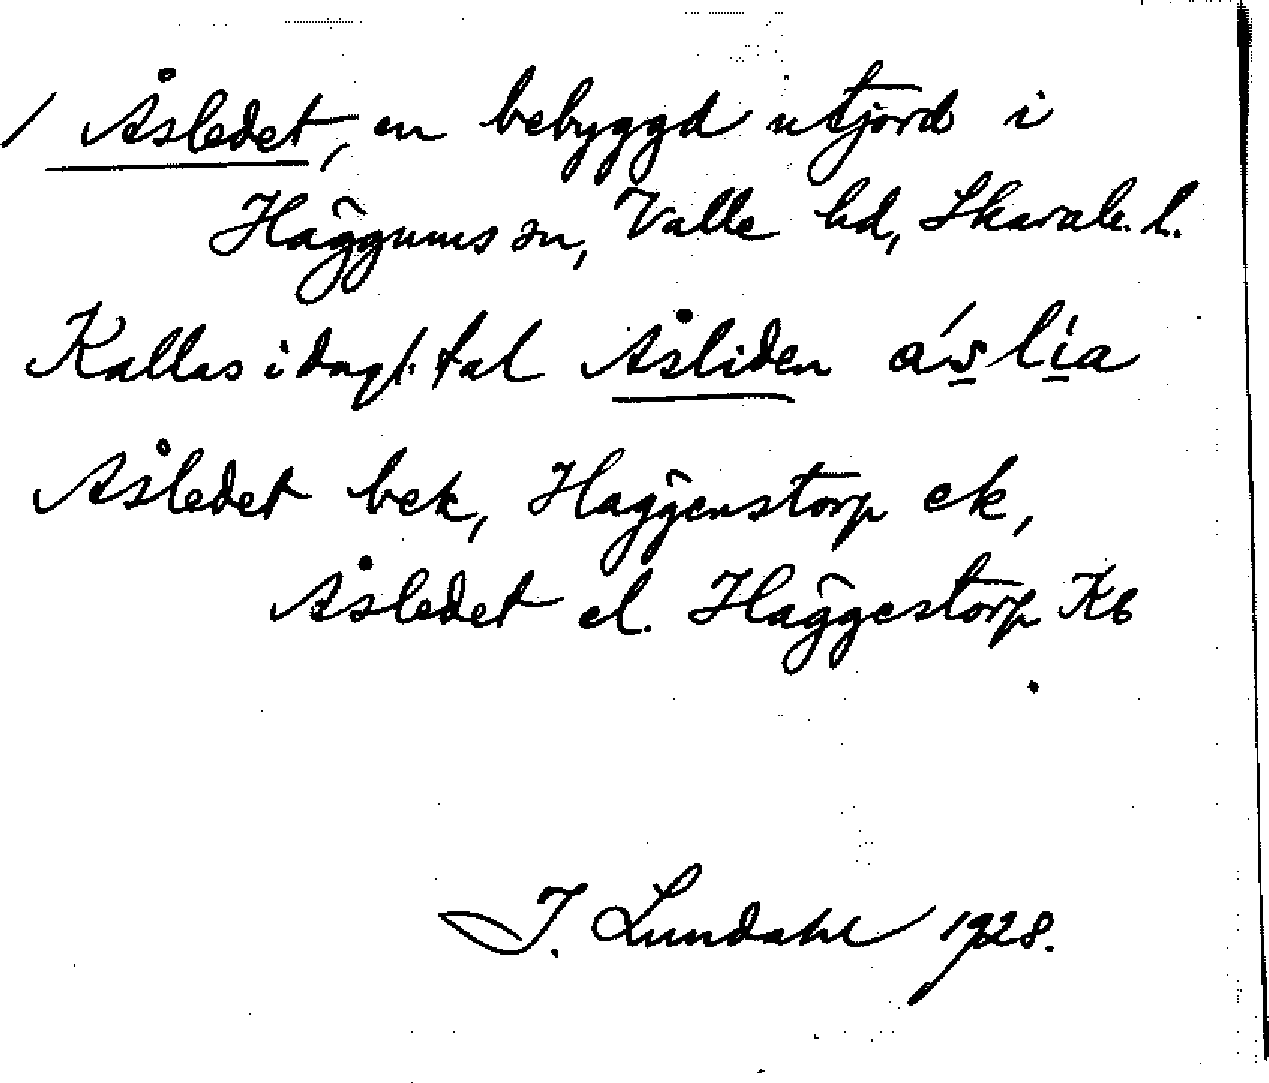 / Åsledet, en bebyggd utjord i
Häggums sn, Valle hd, Skarab. l.
Kallas i dagl. tal Åsliden áslía
Åsledet bek, Häggenstorp ek,
Åsledet el. Häggestorp Kb
I. Lundahl 1928.